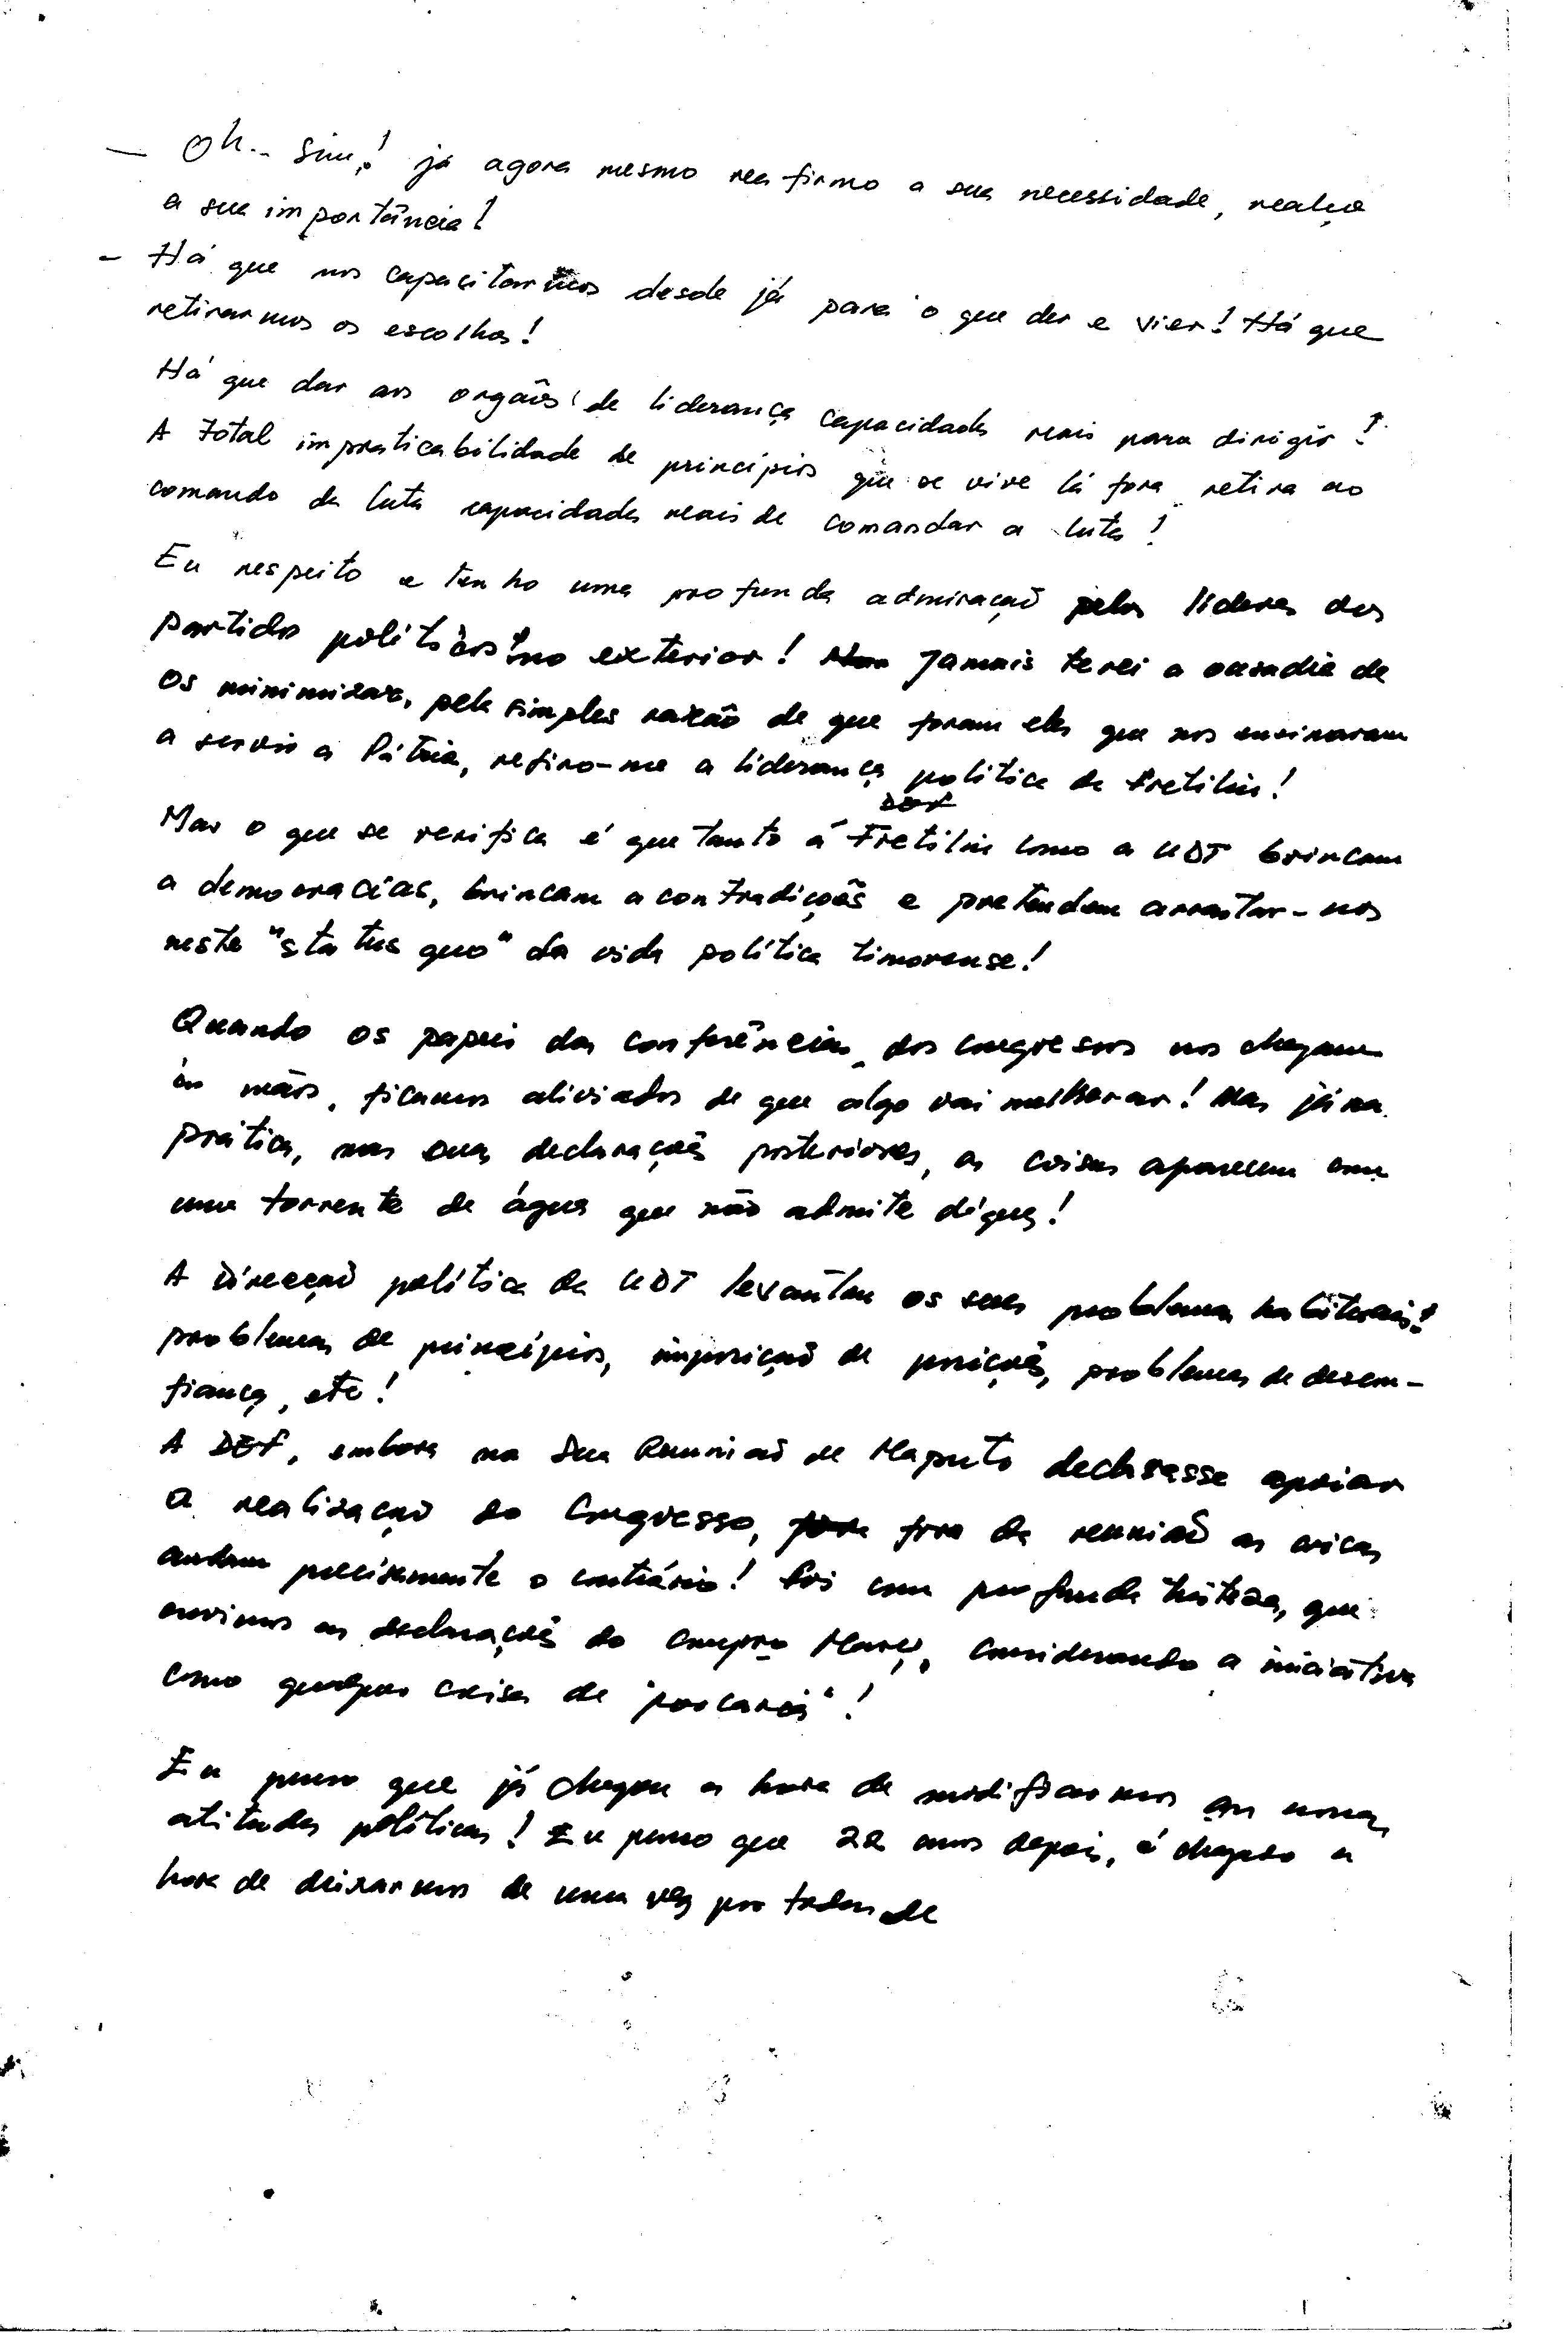 — Oh.. Sim! já agora mesmo reafirmo a sua necessidade, realço
a sua importância!
- Há que nos capacitarmos desde já para o que der e vier! Há que
retirarmos os escolhos!
Há que dar aos orgãos de liderança capacidades reais para dirigir!
A total impraticabilidade de princípios que se vive lá fora retira ao
comando da luta capacidades reais de comandar a luta!
Eu respeito e tenho uma profunda admiração pelos líderes dos
partidos políticos no exterior! Jamais terei a ousadia de
os minimizar, pela simples razão de que foram eles que nos ensinaram
a servir a Pátria, refiro-me a liderança política da Fretilin!
Mas o que se verifica é que tanto a Fretilin como a UDT brincam
a democracias, brincam a contradições e pretendem arrastar-nos
neste "status quo" da vida política timorense!
Quando os papeis das conferências, dos congressos nos chegam
às mãos, ficamos aliviados de que algo vai melhorar! Mas já na
prática, nas suas declarações posteriores, as coisas aparecem em
uma torrente de água que não admite diques!
A Direcção política da UDT levanta os seus problemas habituais!
problemas de princípios, imposição de posições, problemas de descon-
fiança, etc!
A DEF, embora na sua Reunião de Maputo declarasse apoiar
a realização do Congresso, fora da reunião as coisas
andam precisamente o contrário! Foi com profunda tristeza, que
ouvimos as declarações do compº Mari, considerando a iniciativa
como qualquer coisa de
Eu penso que já chegou a hora de modificarmos as nossas
atitudes políticas! Eu penso que 22 anos depois, é chegado a
hora de deixarmos de uma vez por todas de